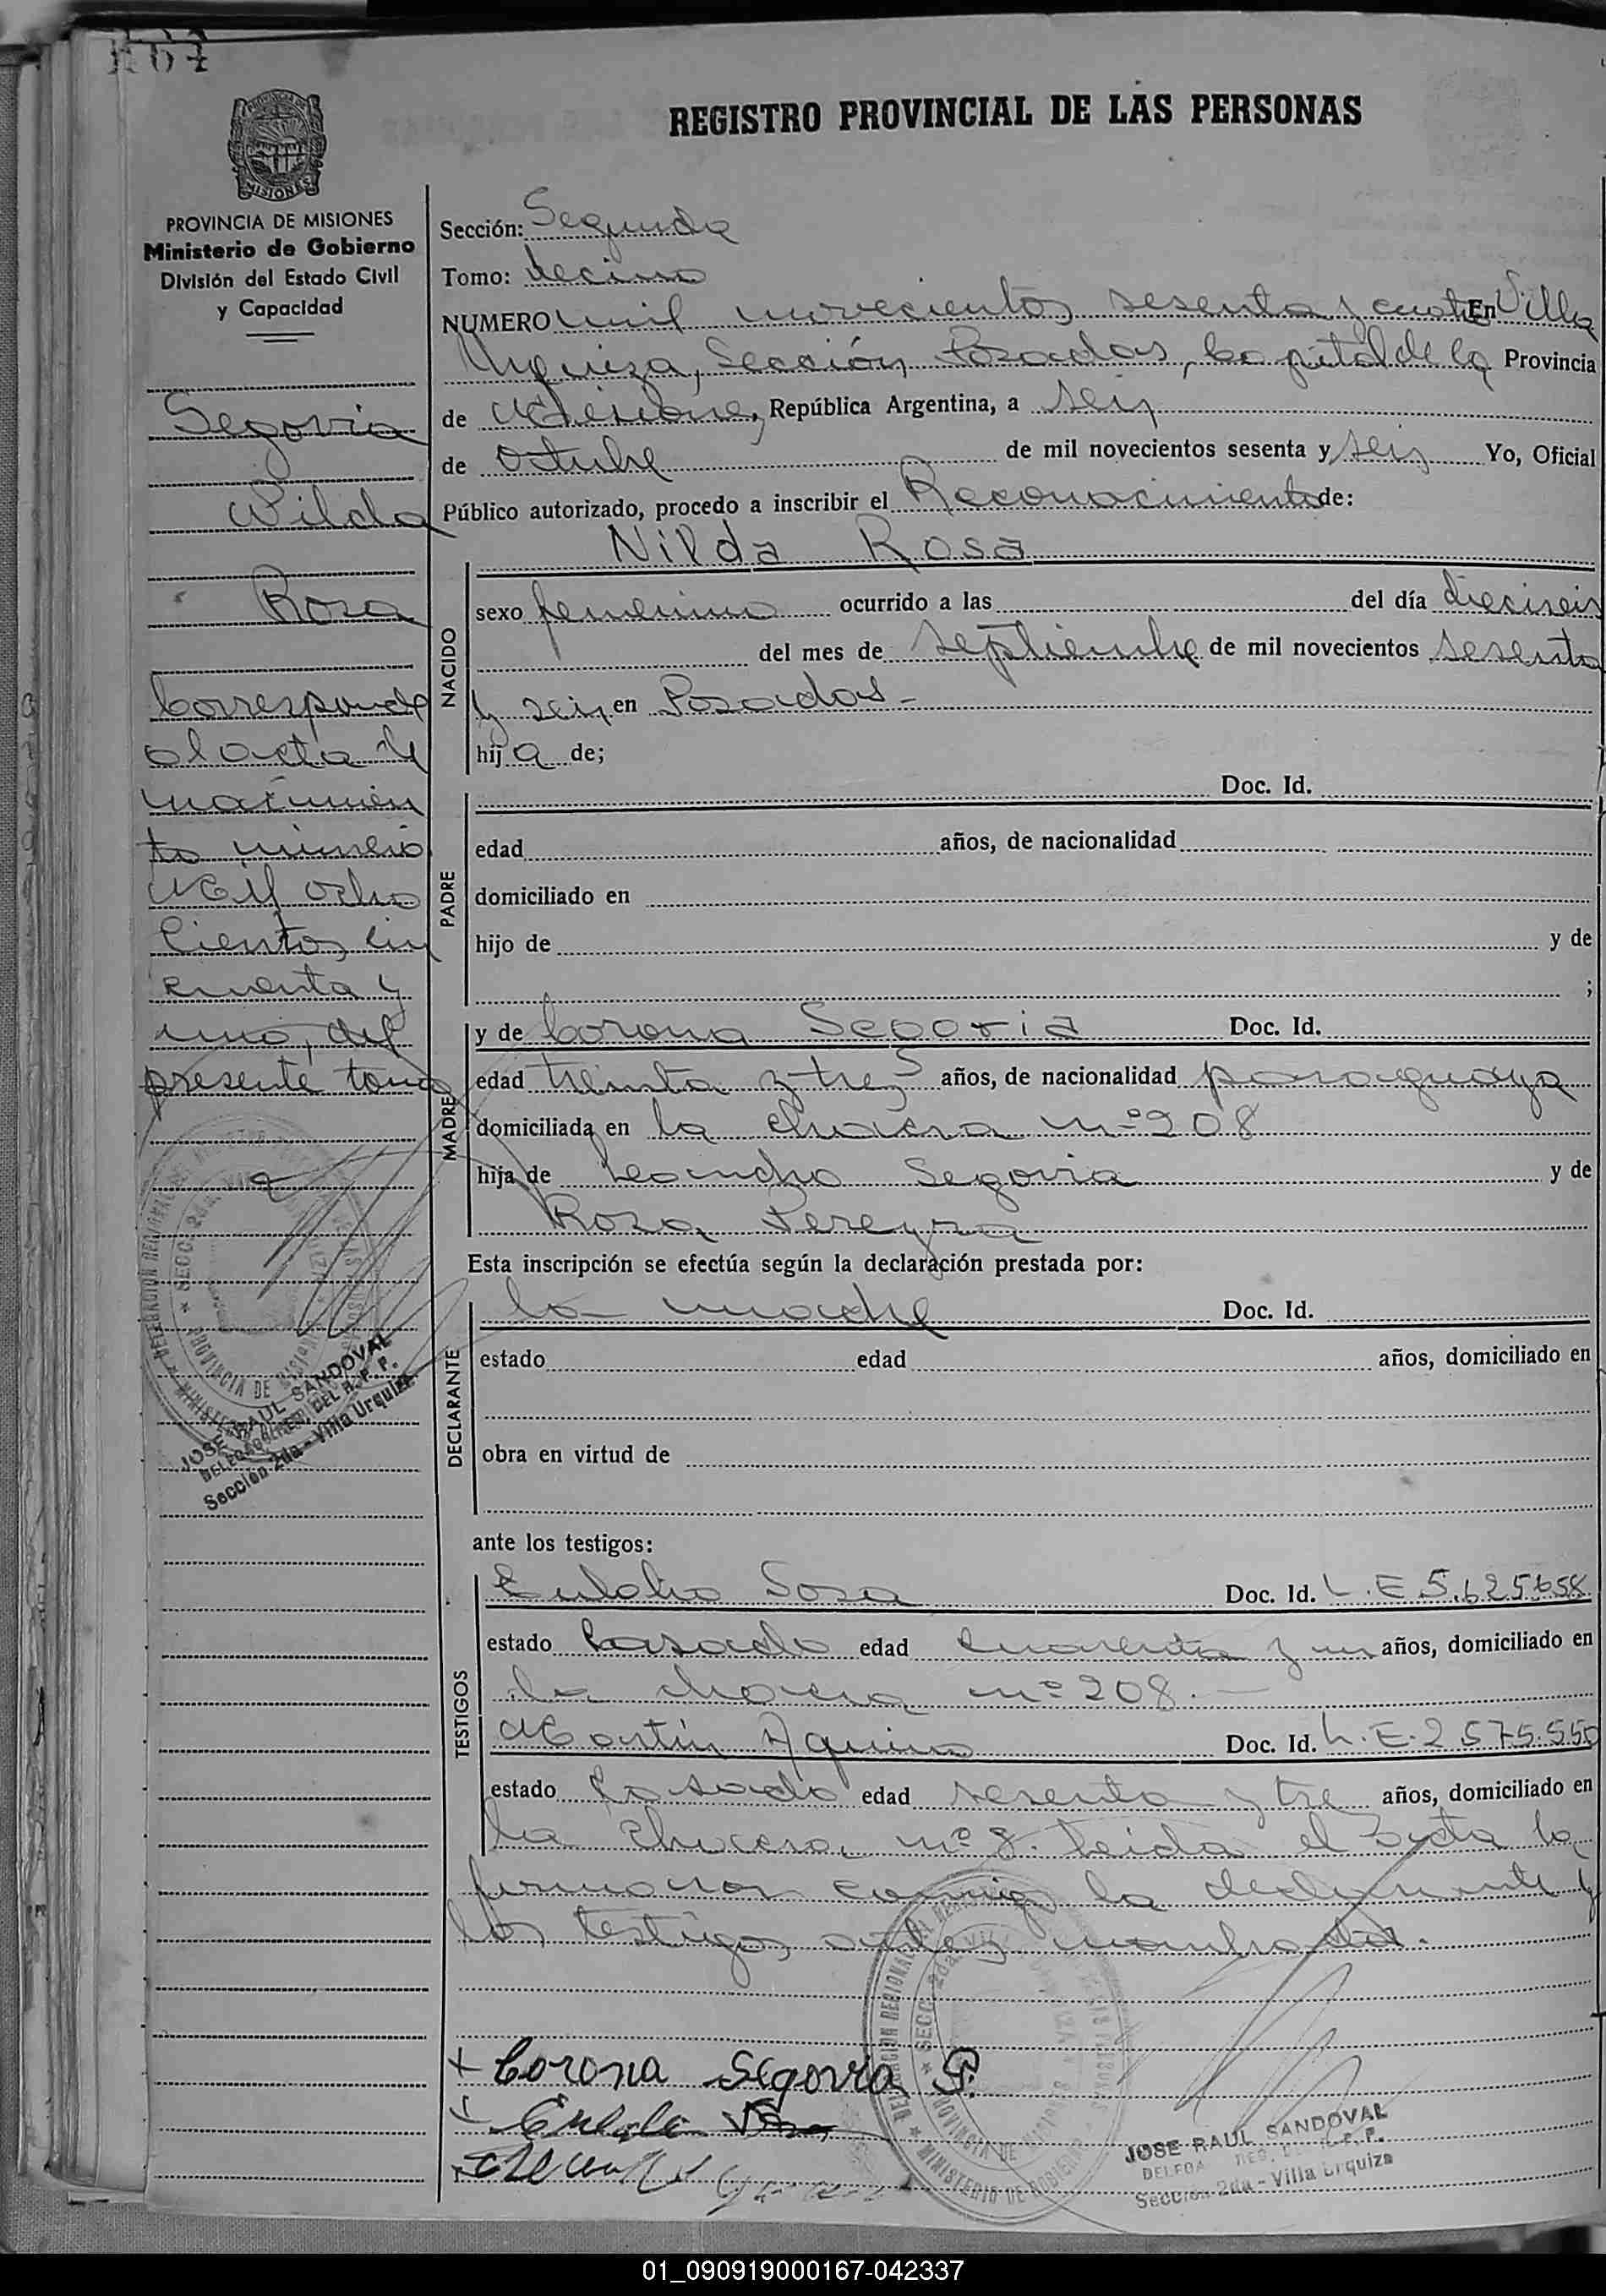 REGISTRO PROVINCIAL DE LAS PERSONAS
MISIONES
PROVINCIA DE MISIONES
Ministerio de Gobierno
División del Estado Civil
y Capacidad
Segovia
Wilda
Rosa
Corresponde
al acta de
nacimien
to número
Mil ocho
cientos, cin
cuenta y
uno, del
presente tomo
JOSE RAUL SANDOVAL
DELEGADO REG. DEL R. P. P.
Sección 2da - Villa Urquiza
Sección: Segunda
Tomo: decimo
NUMERO mil novecientos sesenta y cuatro En Villa
Urquiza, Sección Posadas, Capital de la Provincia
de Misiones, República Argentina, a seis
de Octubre de mil novecientos sesenta y seis Yo, Oficial
Público autorizado, procedo a inscribir el Reconocimiento de:
Nilda Rosa
NACIDO
sexo femenino ocurrido a las del día dieciseis
del mes de septiembre de mil novecientos sesenta
y seis en Posadas -
hij a de;
PADRE
Doc. Id.
edad años, de nacionalidad
domiciliado en
hijo de y de
;
MADRE
y de Corona Segovia Doc. Id.
edad treinta y tres años, de nacionalidad paraguaya
domiciliada en la chacra nº 208
hija de Leandro Segovia y de
Rosa Pereyra
Esta inscripción se efectúa según la declaración prestada por:
DECLARANTE
la madre Doc. Id.
estado edad años, domiciliado en
obra en virtud de
ante los testigos:
TESTIGOS
Eulalio Sosa Doc. Id. L.E 5.625658
estado Casado edad cuarenta y un años, domiciliado en
la chacra nº 208. -
Martín Aquino Doc. Id. L.E. 2 575.550
estado Casado edad sesenta y tre años, domiciliado en
la Chacra nº 8. Leida el acta la
firmaron conmigo la declarante y
los testigos antes nombrados.
x Corona Segovia P.
JOSE RAUL SANDOVAL
Sección 2da - Villa Urquiza
01_090919000167-042337